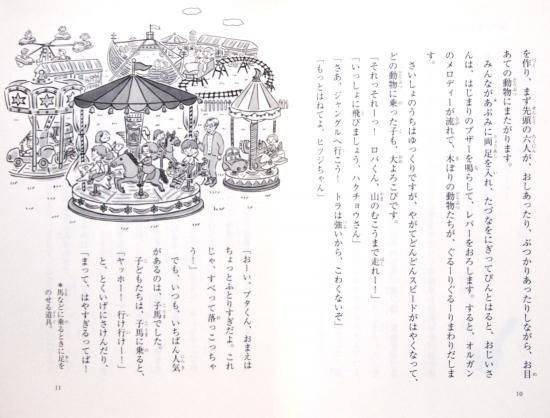 を作り、まず先頭の六人が、おしあったり、ぶつかりあったりしながら、お目
あての動物にまたがります。
みんながあぶみに両足を入れ、たづなをにぎってぴんとはると、おじいさ
んは、はじまりのブザーを鳴らして、レバーをおろします。すると、オルガン
のメロディーが流れて、木ぼりの動物たちが、ぐるーりぐるーりまわりだしま
す。
さいしょのうちはゆっくりですが、やがてどんどんスピードがはやくなって、
どの動物に乗った子も、大よろこびです。
「それっそれーっ！ロバくん、山のむこうまで走れー！」
「いっしょに飛びましょう、ハクチョウさん」
「さあ、ジャングルへ行こう！トラは強いから、こわくないぞ」
「もっとはねてよ、ヒツジちゃん」
10
「おーい、ブタくん、おまえは
ちょっとふとりすぎだよ。これ
じゃ、すべって落っこっちゃ
う！」
でも、いつも、いちばん人気
があるのは、子馬でした。
子どもたちは、子馬に乗ると、
「ヤッホー！行け行けー！」
と、とくいげにさけんだり、
「まって、はやすぎるってば！
＊馬などに乗るときに足を
のせる道具。
11